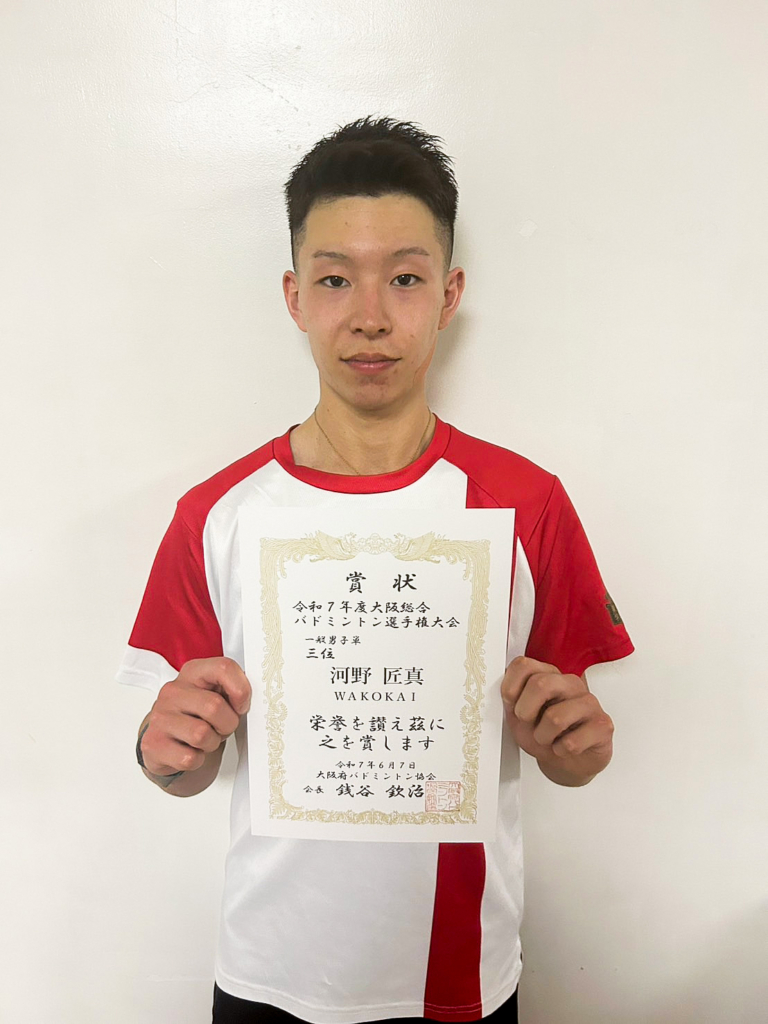 賞状
令和7年度大阪総合
バドミントン選手権大会
一般男子単
三位
河野 匠真
WAKOKAI
栄誉を讃え茲に
之を賞します
令和7年6月7日
大阪府バドミントン協会
会長 銭谷 欽治